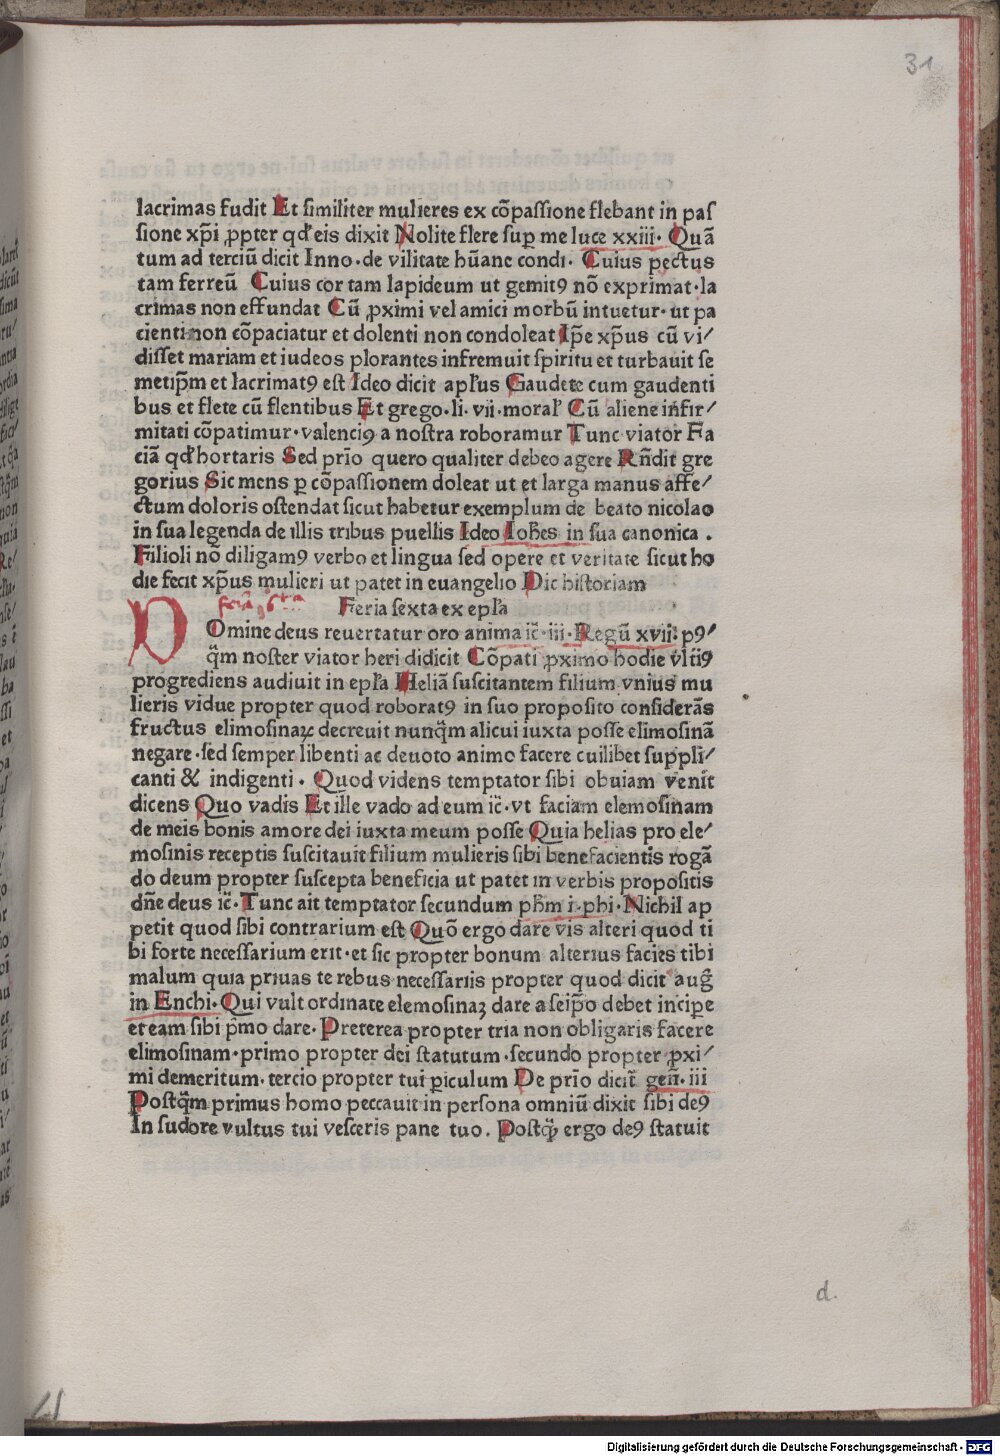 31
lacrimas fudit Et similiter mulieres ex cōpassione flebant in pas
sione xp̄i ꝓpter qđ eis dixit Nolite flere suꝑ me luce xxiii· Quā
tum ad terciū dicit Inno·de vilitate hūane condi· Cuius pectus
tam ferreū Cuius cor tam lapideum ut gemitꝰ nō exprimat·la
crimas non effundat Cū ꝓximi vel amici morbū intuetur·ut pa
cienti non cōpaciatur et dolenti non condoleat Ip̄e xp̄us cū vi⸗
disset mariam et iudeos plorantes infremuit spiritu et turbauit se
metip̄m et lacrimatꝰ est Ideo dicit apl̄us Gaudete cum gaudenti
bus et flete cū flentibus Et grego·li·vii·moral̄ Cū aliene infir⸗
mitati cōpatimur·valenciꝰ a nostra roboramur Tunc viator Fa
ciā qđ hortaris Sed prīo quero qualiter debeo agere Rn̄dit gre
gorius Sic mens ꝑ cōpassionem doleat ut et larga manus affe⸗
ctum doloris ostendat sicut habetur exemplum de beato nicolao
in sua legenda de illis tribus puellis Ideo Ioh̄es in sua canonica .
Filioli nō diligamꝰ verbo et lingua sed opere et veritate sicut ho
die fecit xp̄us mulieri ut patet in euangelio Dic historiam
feria 6ta Feria sexta ex epl̄a
DOmine deus reuertatur oro anima ic̄·iii·Regū xvii: pꝰ⸗
q̄m noster viator heri didicit Cōpati ꝓximo hodie vlt̄iꝰ
progrediens audiuit in epl̄a Heliā suscitantem filium vnius mu
lieris vidue propter quod roboratꝰ in suo proposito considerās
fructus elimosinaꝝ decreuit nunq̄m alicui iuxta posse elimosinā
negare·sed semper libenti ac deuoto animo facere cuilibet suppli⸗
canti & indigenti . Quod videns temptator sibi obuiam venit
dicens Quo vadis Et ille vado ad eum ic̄·vt faciam elemosinam
de meis bonis amore dei iuxta meum posse Quia helias pro ele⸗
mosinis receptis suscitauit filium mulieris sibi benefacientis rogā
do deum propter suscepta beneficia ut patet in verbis propositis
dn̄e deus ic̄·Tunc ait temptator secundum ph̄m i·phi·Nichil ap
petit quod sibi contrarium est Quō ergo dare vis alteri quod ti
bi forte necessarium erit·et sic propter bonum alterius facies tibi
malum quia priuas te rebus necessariis propter quod dicit auḡ
in Enchi·Qui vult ordinate elemosinaꝫ dare a seip̄o debet incipe
et eam sibi p̄mo dare·Preterea propter tria non obligaris facere
elimosinam·primo propter dei statutum·secundo propter ꝓxi⸗
mi demeritum·tercio propter tui ꝑiculum De prīo dicit̄ gen̄·iii
Postq̄m primus homo peccauit in persona omniū dixit sibi deꝰ
In sudore vultus tui vesceris pane tuo. Postq̄ ergo deꝰ statuit
d.
Digitalisierung gefördert durch die Deutsche Forschungsgemeinschaft - DFG